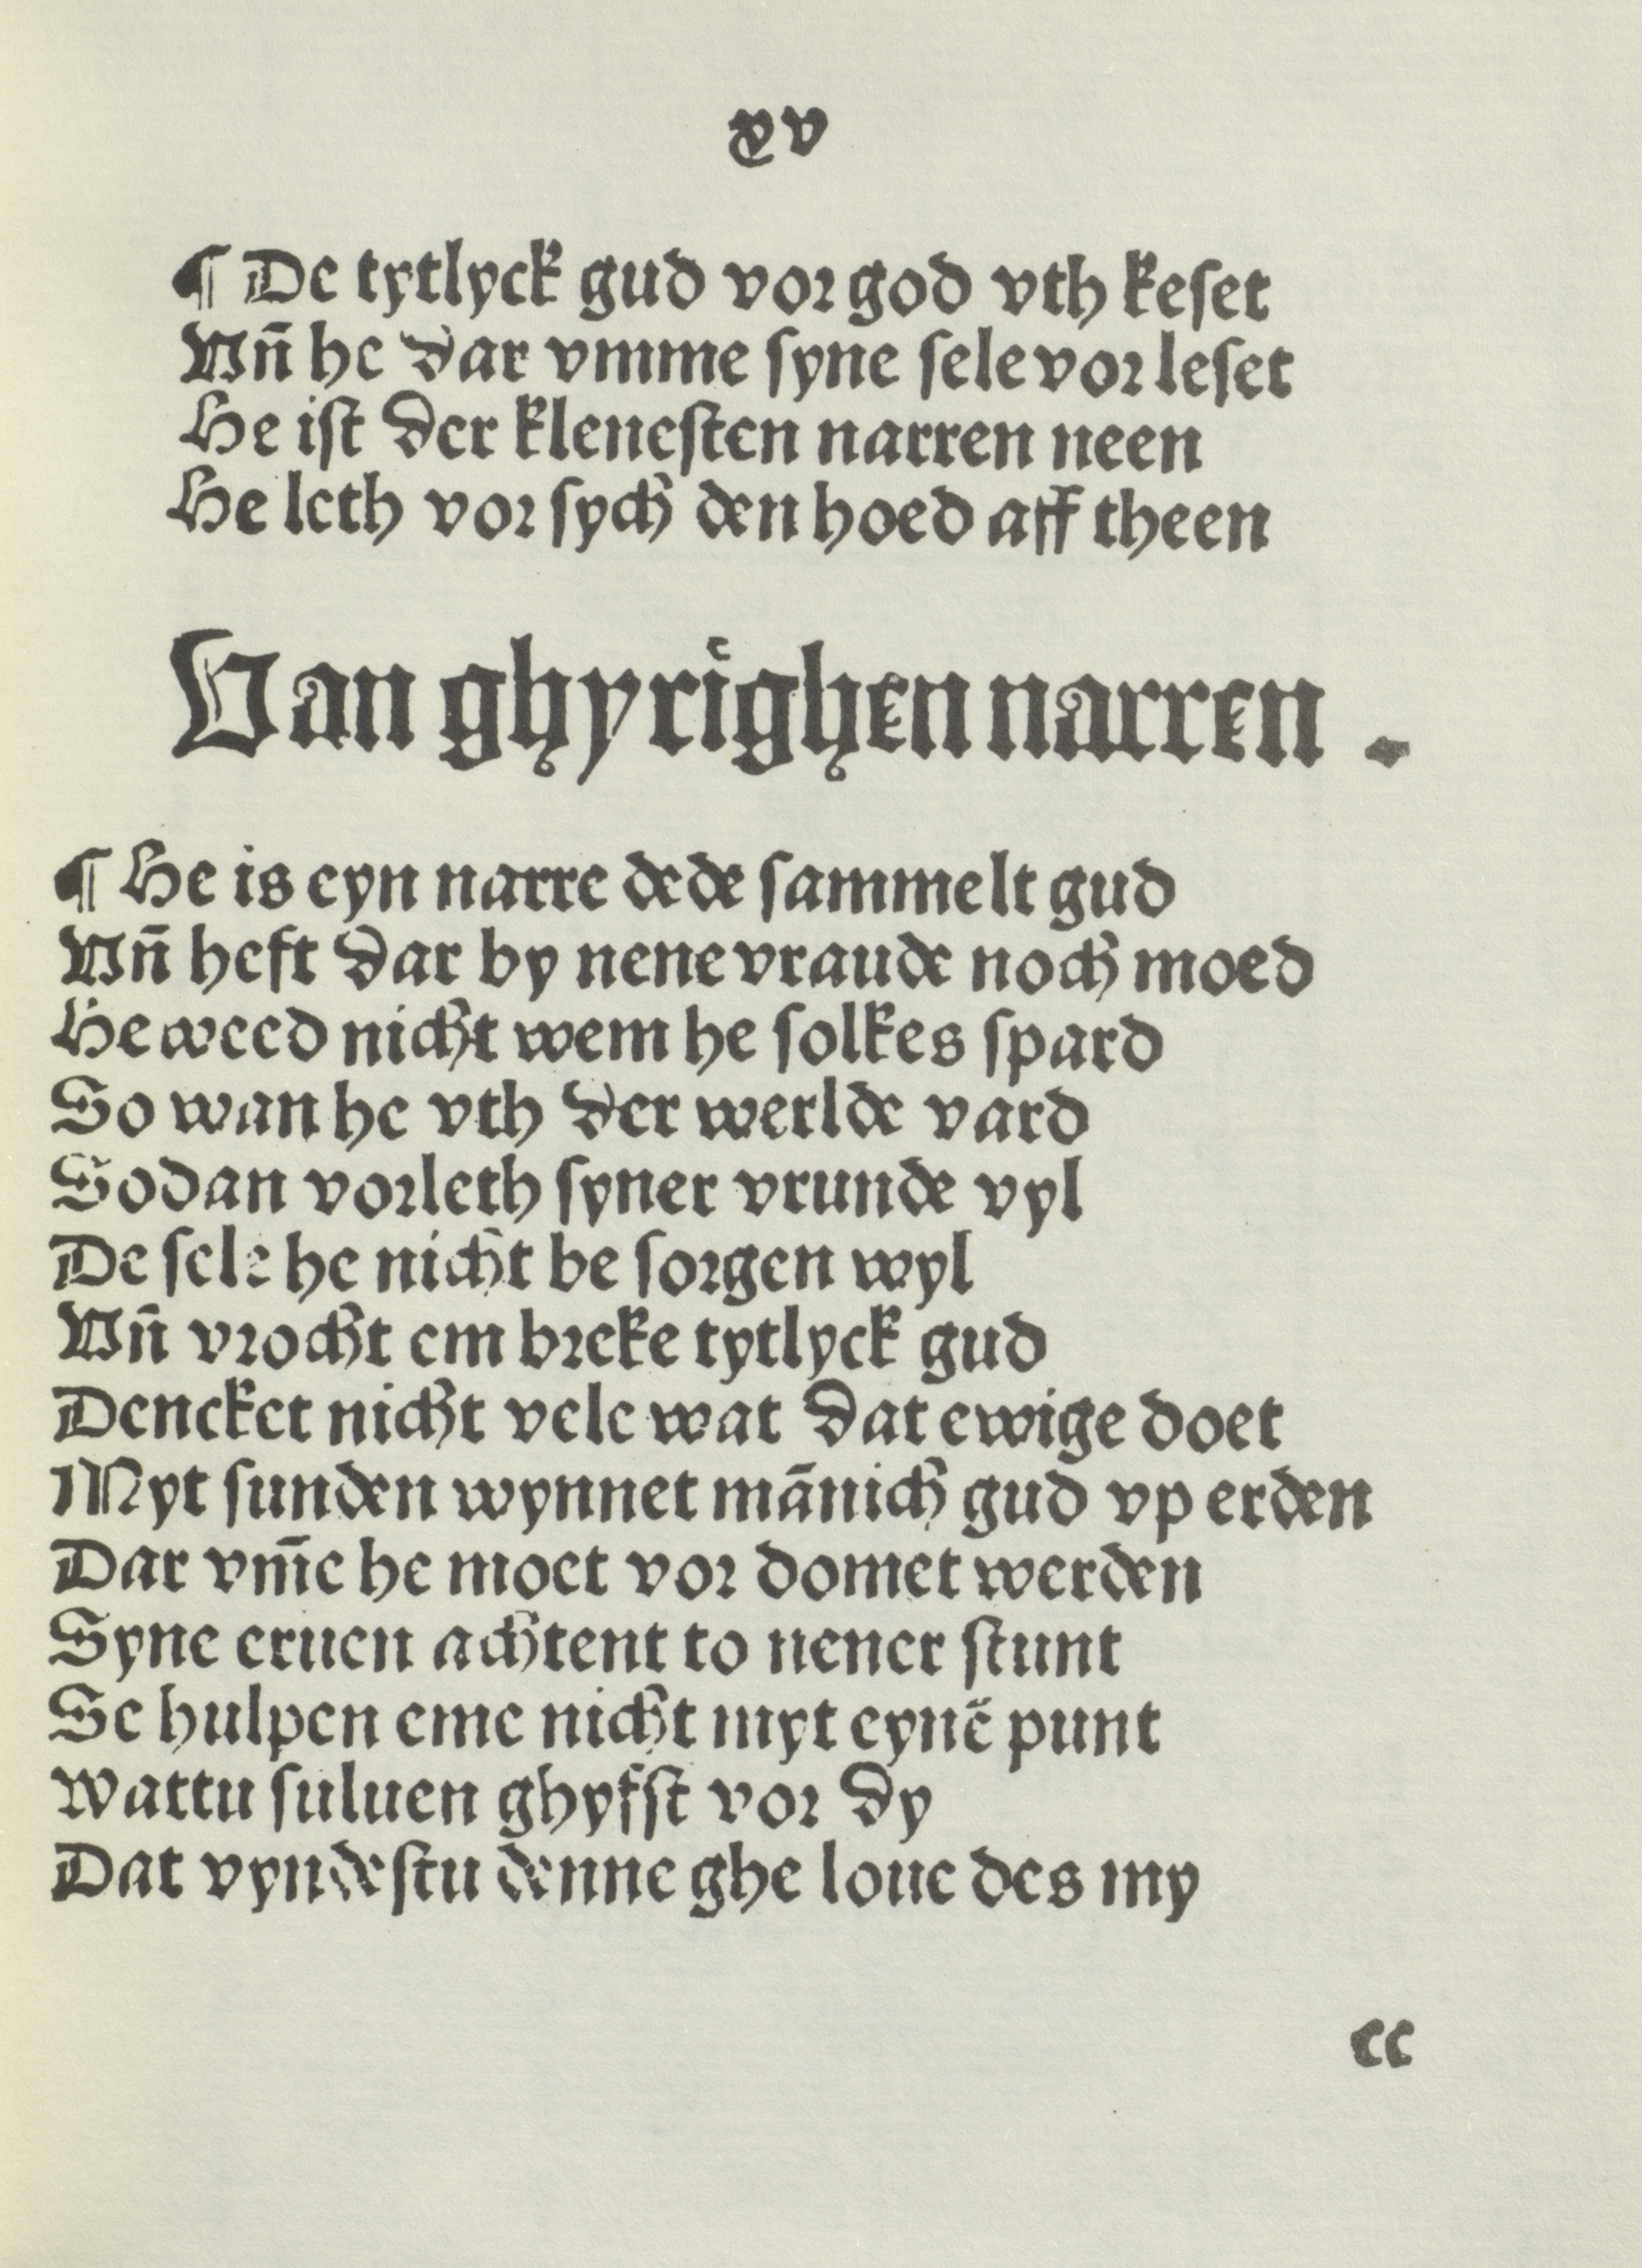 xv
¶ De tytlyck gud vor god vth keset
Vñ he dar vmme syne sele vor leset
He ist der klenesten narren neen
He leth vor sych den hoed aff theen
Van ghyrighen narren .
¶ He is eyn narre dede sammelt gud
Vñ heft dar by nene vraude noch moed
He weed nicht wem he solkes spard
So wan he vth der werlde vard
Sodan vorleth syner vrunde vyl
De sele he nicht be sorgen wyl
Vñ vrocht em breke tytlyck gud
Dencket nicht vele wat dat ewige doet
Myt sunden wynnet mānich gud vp erden
Dar vm̄e he moet vor domet werden
Syne eruen achtent to nener stunt
Se hulpen eme nicht myt eynē punt
Wattu suluen ghyfst vor dy
Dat vyndestu denne ghe loue des my
cc